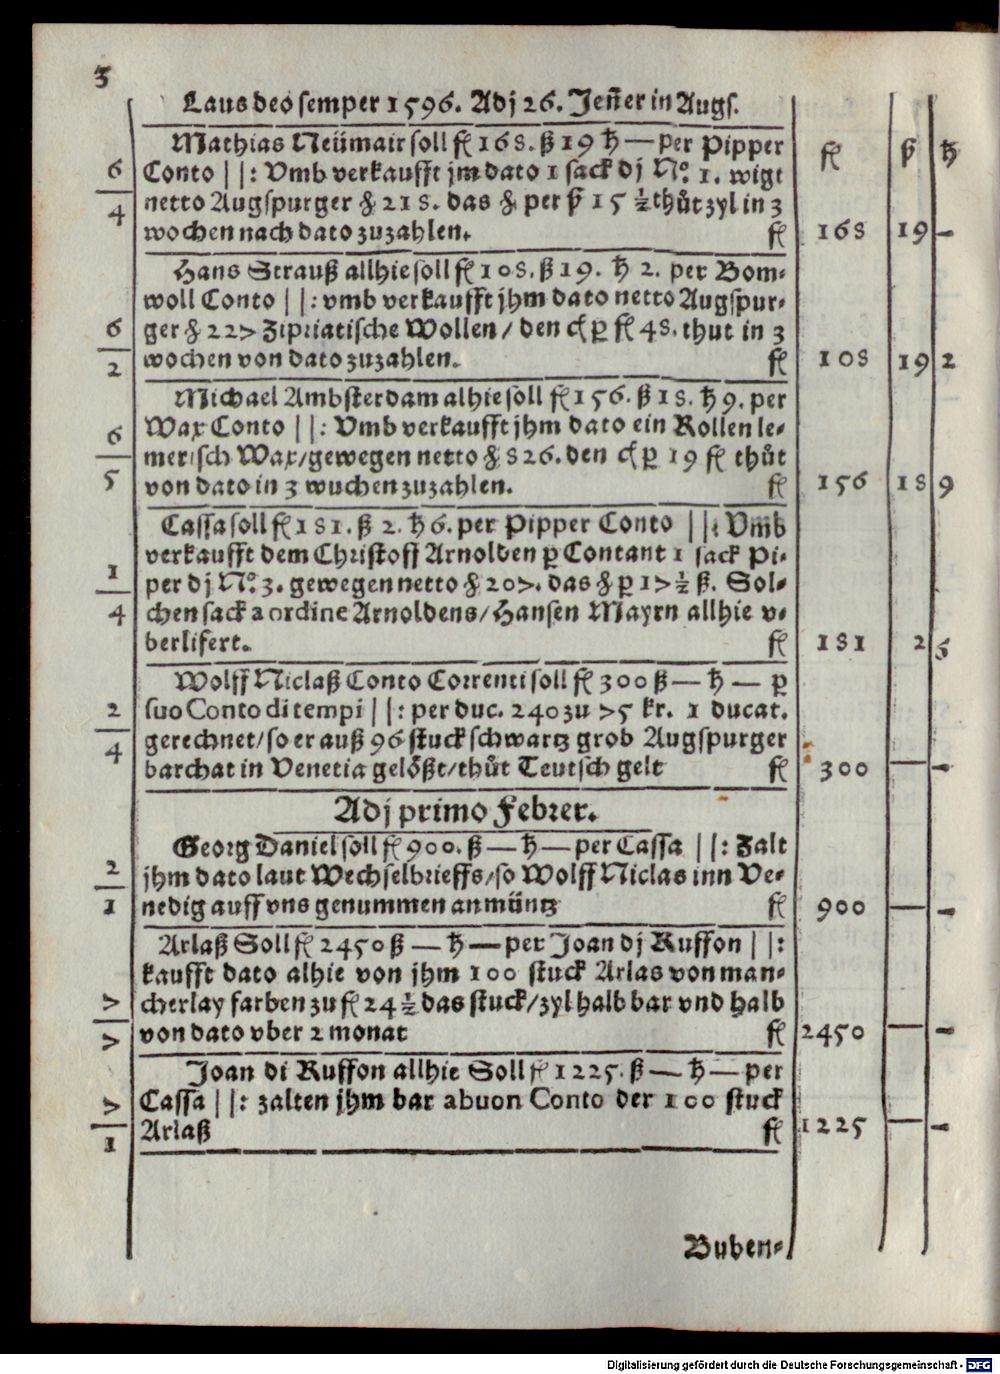 3
Laus deo semper 1596. Adj 26. Jeñer in Augs.
Mathias Neümair soll fl 168. ß 19 ₰ — per Pipper
Conto ||: Vmb verkaufft jm dato 1 sack dj No. 1. wigt
netto Augspurger ℔ 218. das ℔ per ß 15 ½ thůt zyl in 3
wochen nach dato zuzahlen. fl
6
4
fl ß ₰
168 19 —
Hans Strauß allhie soll fl 108. ß 19. ₰ 2. per Bom-
woll Conto ||: vmb verkaufft jhm dato netto Augspur-
ger ℔ 227 Zipriatische Wollen / den c͡t ꝑ fl 48. thut in 3
wochen von dato zuzahlen. fl
6
2
108 19 2
Michael Ambsterdam alhie soll fl 156. ß 18. ₰ 9. per
Wax Conto ||: Vmb verkaufft jhm dato ein Rollen le-
merisch Wax / gewegen netto ℔ 826. den c͡t ꝑ 19 fl thůt
von dato in 3 wuchen zuzahlen. fl
6
5
156 18 9
Cassa soll fl 181. ß 2. ₰ 6. per Pipper Conto ||: Vmb
verkaufft dem Christoff Arnolden ꝑ Contant 1 sack Pi-
per dj No. 3. gewegen netto ℔ 207. das ℔ ꝑ 17 ½ ß. Sol-
chen sack a ordine Arnoldens / Hansen Mayrn allhie v-
berlifert. fl
1
4
181 2 6
Wolff Niclaß Conto Correnti soll fl 300 ß — ₰ — ꝑ
suo Conto di tempi ||: per duc. 240 zu 75 kr. 1 ducat.
gerechnet / so er auß 96 stuck schwartz grob Augspurger
barchat in Venetia gelößt / thůt Teutsch gelt fl
2
4
300 — —
Adj primo Febrer.
Georg Daniel soll fl 900. ß — ₰ — per Cassa ||: Zalt
jhm dato laut Wechselbrieffs / so Wolff Niclas inn Ve-
nedig auff vns genummen an müntz fl
2
1
900 — —
Arlaß Soll fl 2450 ß — ₰ — per Joan dj Ruffon ||:
kaufft dato alhie von jhm 100 stuck Arlas von man-
cherlay farben zu fl 24 ½ das stuck / zyl halb bar vnd halb
von dato vber 2 monat fl
7
7
2450 — —
Joan di Ruffon allhie Soll fl 1225. ß — ₰ — per
Cassa ||: zalten jhm bar a buon Conto der 100 stuck
Arlaß fl
7
1
1225 — —
Buben-
Digitalisierung gefördert durch die Deutsche Forschungsgemeinschaft - DFG